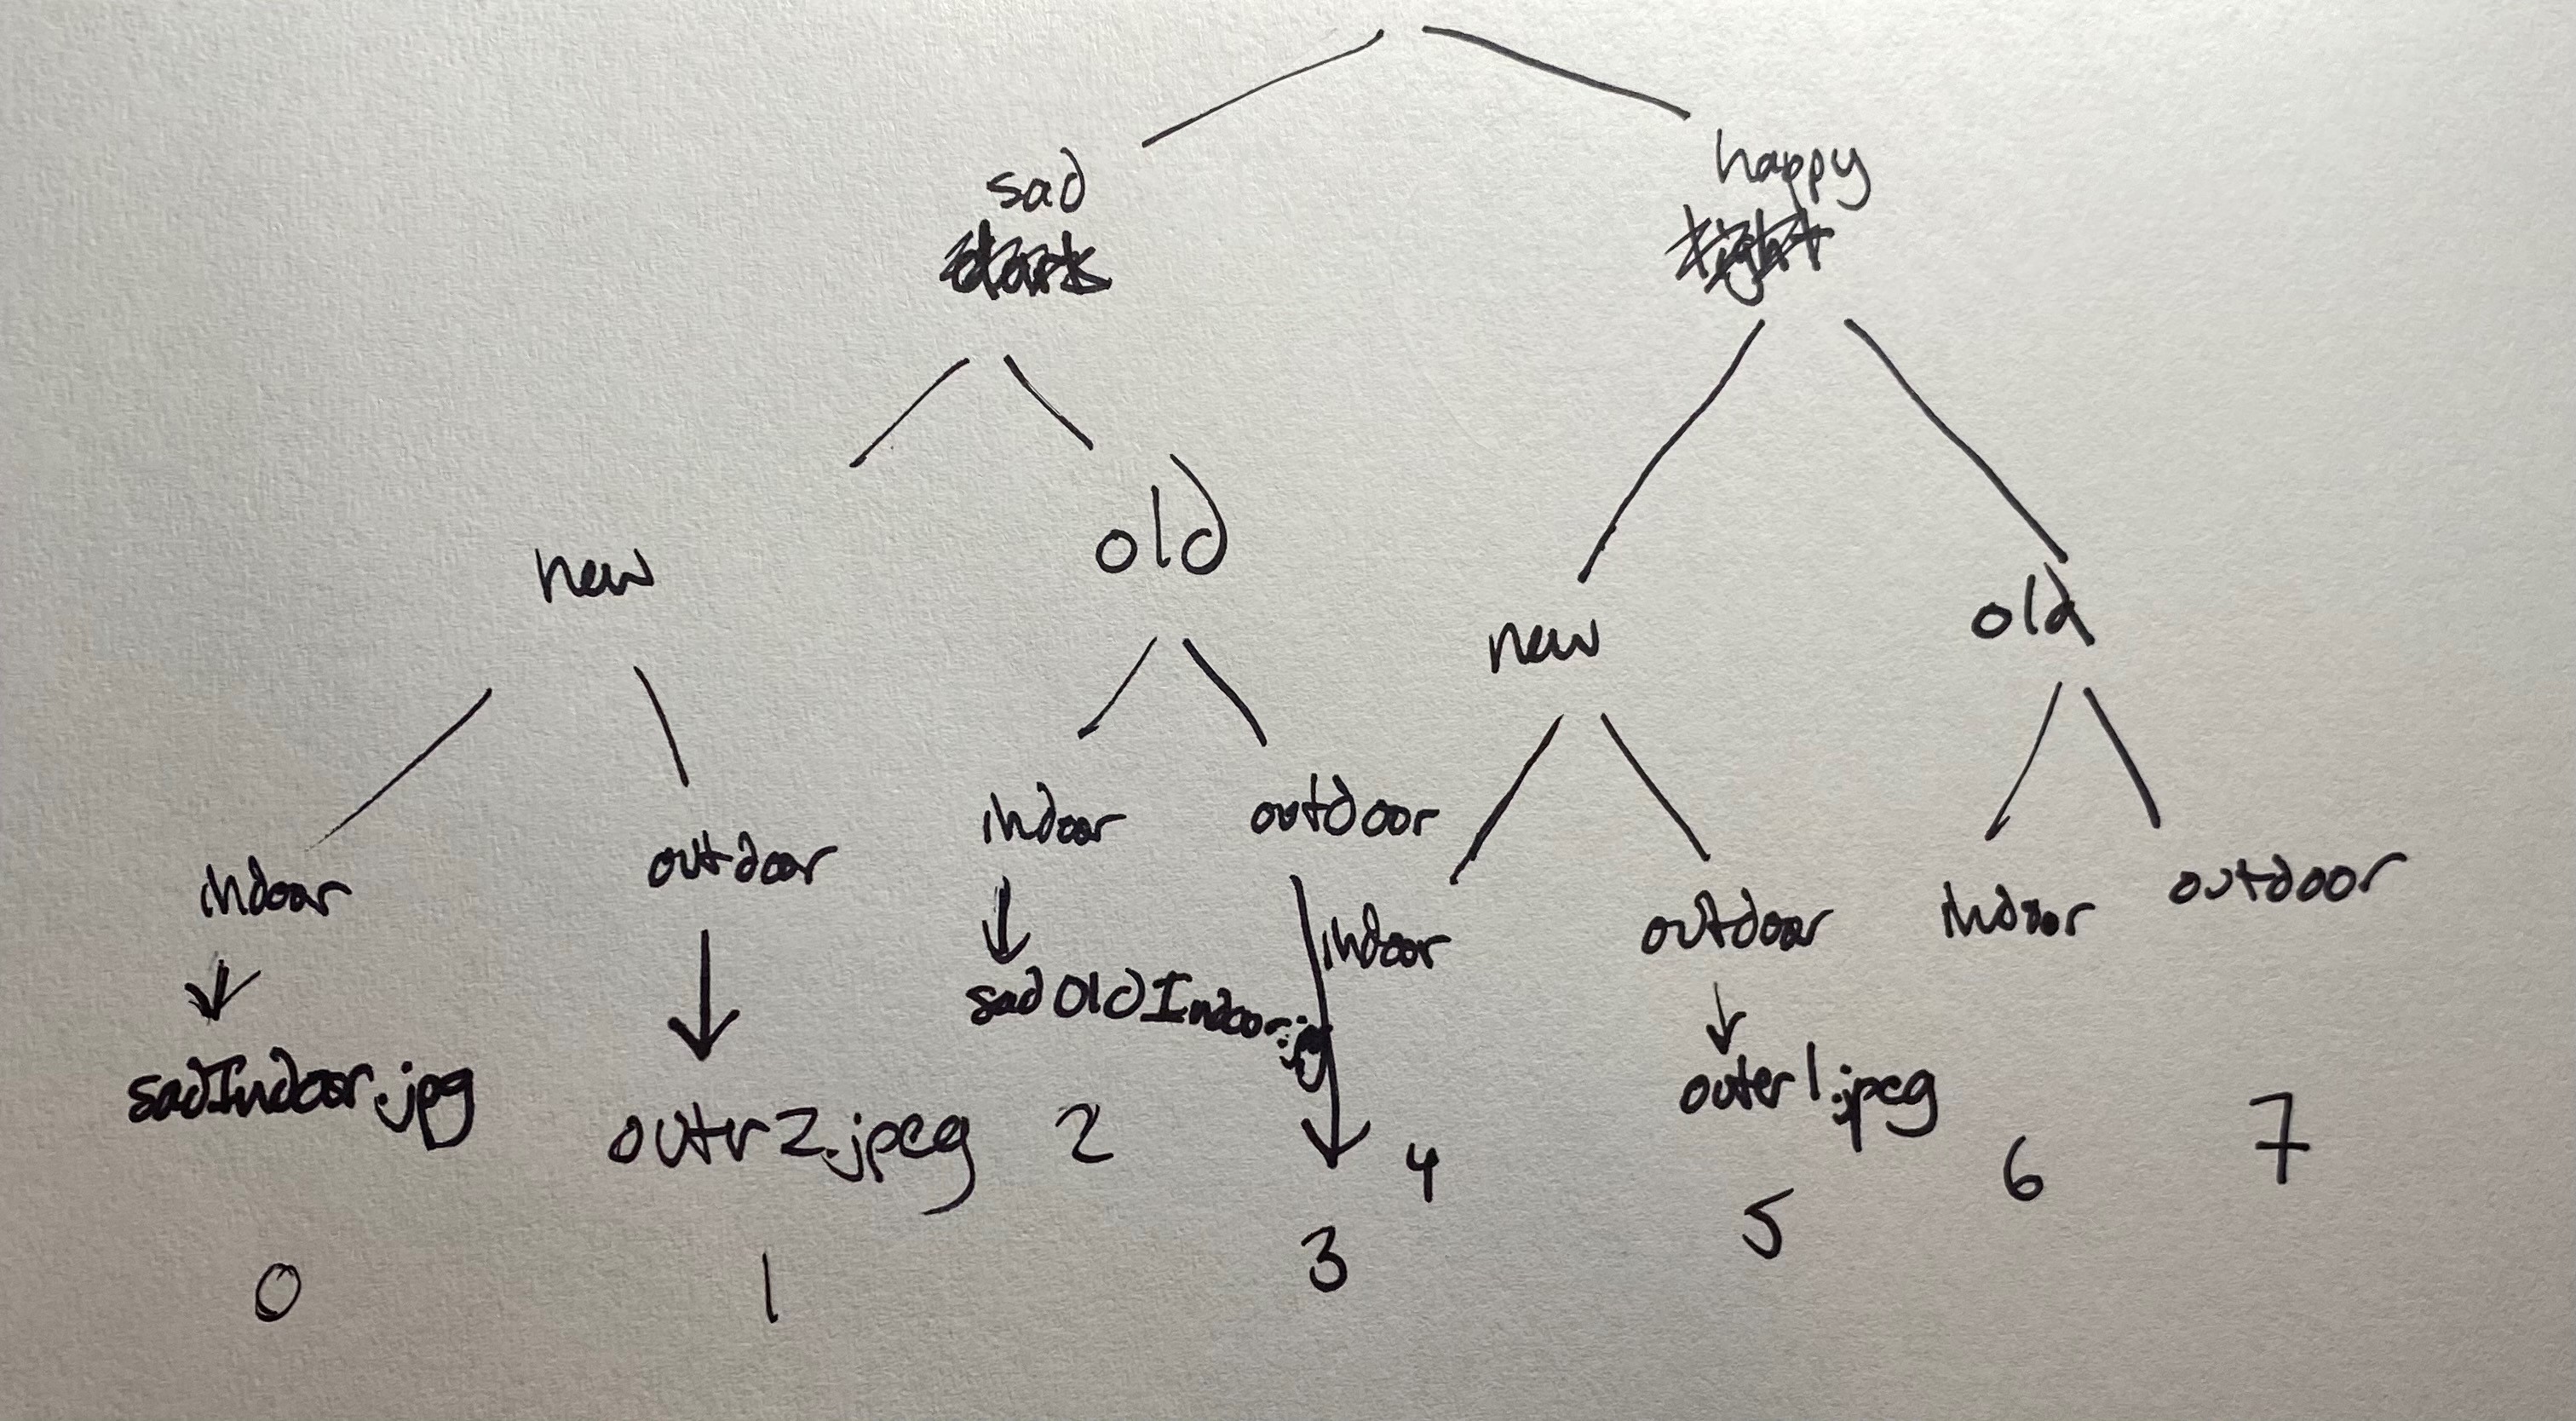 sad happy
new old new old
indoor outdoor indoor outdoor indoor outdoor indoor outdoor
sadIndoor.jpg outer2.jpeg sadOldIndoor.jpg outer1.jpeg
0 1 2 3 4 5 6 7